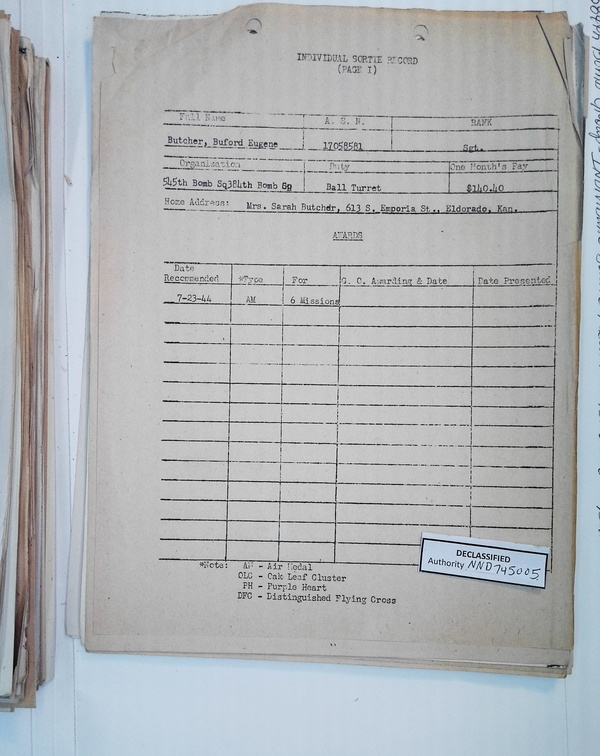 INDIVIDUAL SORTIE RECORD
(PAGE I)
Full Name A. S. N. RANK
Butcher, Buford Eugene 17058581 Sgt.
Organization Duty One Month's Pay
545th Bomb Sq384th Bomb Gp Ball Turret $140.40
Home Address: Mrs. Sarah Butcher, 613 S. Emporia St., Eldorado, Kan.
AWARDS
Date
Recommended *Type For G. O. Awarding & Date Date Presented
7-23-44 AM 6 Missions
*Note: AM - Air Medal
OLC - Oak Leaf Cluster
PH - Purple Heart
DFC - Distinguished Flying Cross
DECLASSIFIED
Authority NND745005